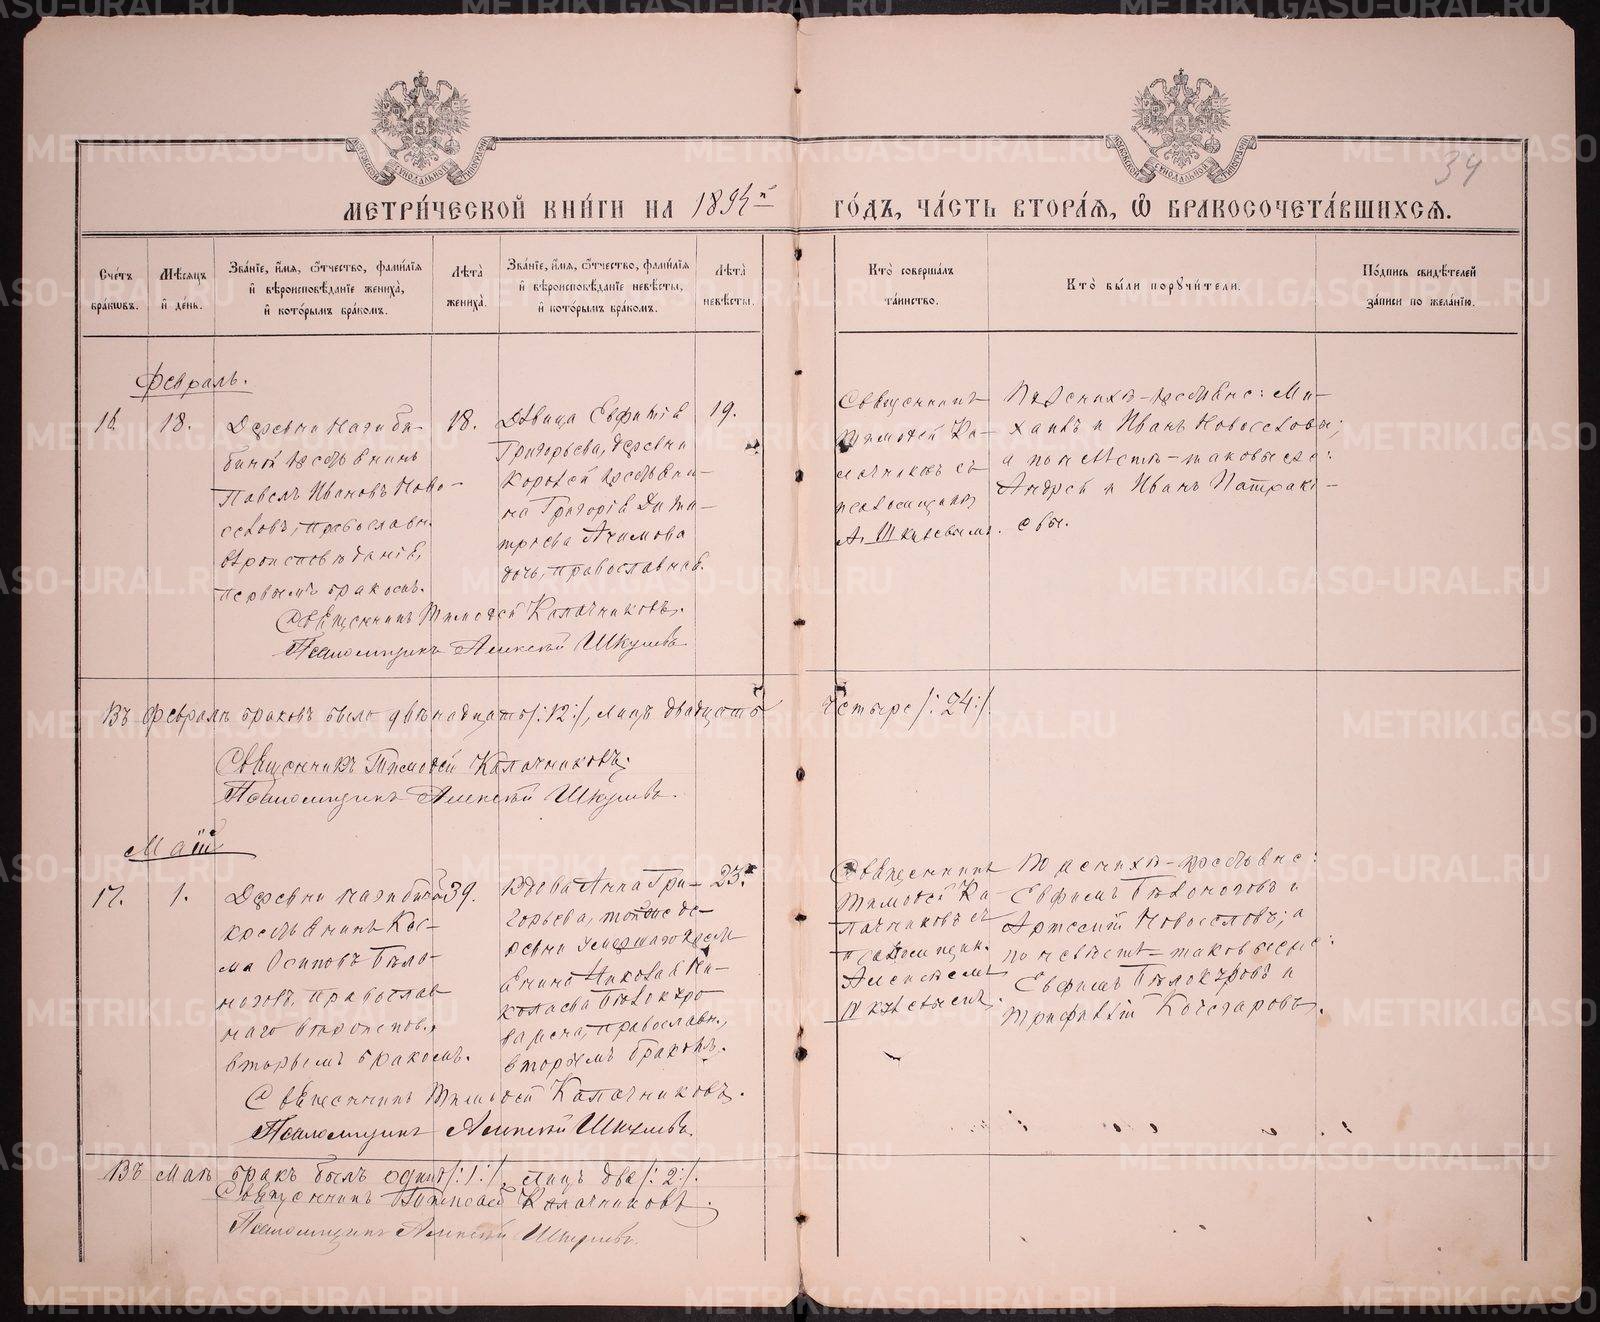 34
МЕТРИ́ЧЕСКОЙ КНИ́ГИ НА 1894й ГО́ДЪ, ЧА́СТЬ ВТОРА́Я, Ѡ БРАКОСОЧЕТА́ВШИХСЯ.
Сче́тъ бра́кѡвъ.
Мѣ́сяцъ и де́нь.
Зва́нїе, и́мя, ѻ́тчество, фами́лїя и вѣроисповѣ́данїе жениха̀, и кото́рымъ бра́комъ.
Лѣта̀ жениха̀.
Зва́нїе, и́мя, ѻ́тчество, фами́лїя и вѣроисповѣ́данїе невѣ́сты, и кото́рымъ бра́комъ.
Лѣта̀ невѣ́сты.
Кто̀ соверша́лъ та́инство.
Кто̀ бы́ли порꙋчи́тели.
По́дпись свидѣ́телей за́писи по жела́нїю.
Февраль.
16. 18.
Деревни Нагиби-
биной крестьянинъ
Павелъ Ивановъ Ново-
селовъ, православн.
вѣроисповѣданія,
первымъ бракомъ.
18.
Дѣвица Евфимія
Григорьева, деревни
крестьяни-
на Григорія Дими-
тріева Акимова
дочь, православная.
19.
Священникъ
Тимофей Ка-
лачниковъ съ
псаломщикомъ
А. Шкулевымъ.
По женихѣ - крестьяне: Ми-
хаилъ и Иванъ Новоселовы;
а по невѣстѣ - таковые же:
Андрей и Иванъ Патраки-
евы.
Священникъ Тимофей Калачниковъ.
Псаломщикъ Алексѣй Шкулевъ.
Въ Февралѣ браковъ было двѣнадцать /:12:/, лицъ двадцать четыре /:24:/.
Священникъ Тимофей Калачниковъ.
Псаломщикъ Алексѣй Шкулевъ.
Май
17. 1.
Деревни Нагибиной
крестьянинъ Кос-
ма Осиповъ Бѣло-
ноговъ, православ-
наго вѣроисповѣ.,
вторымъ бракомъ.
39.
Вдова Анна Гри-
горьева, той же де-
ревни умершаго крест-
янина Николая Ни-
колаева
православн.,
вторымъ бракомъ.
23.
Священникъ
Тимофей Ка-
лачниковъ съ
псаломщик.
Алексѣемъ
Шкулевымъ.
По женихѣ - крестьяне:
Евфимъ Бѣлоноговъ и
Арсеній Новоселовъ; а
по невѣстѣ - таковые же:
Евфимъ и
Трифилій Кочегаровъ.
Священникъ Тимофей Калачниковъ.
Псаломщикъ Алексѣй Шкулевъ.
Въ Маѣ бракъ былъ одинъ /:1:/, лицъ два /:2:/.
Священникъ Тимофей Калачниковъ.
Псаломщикъ Алексѣй Шкулевъ.
METRIKI.GASO-URAL.RU